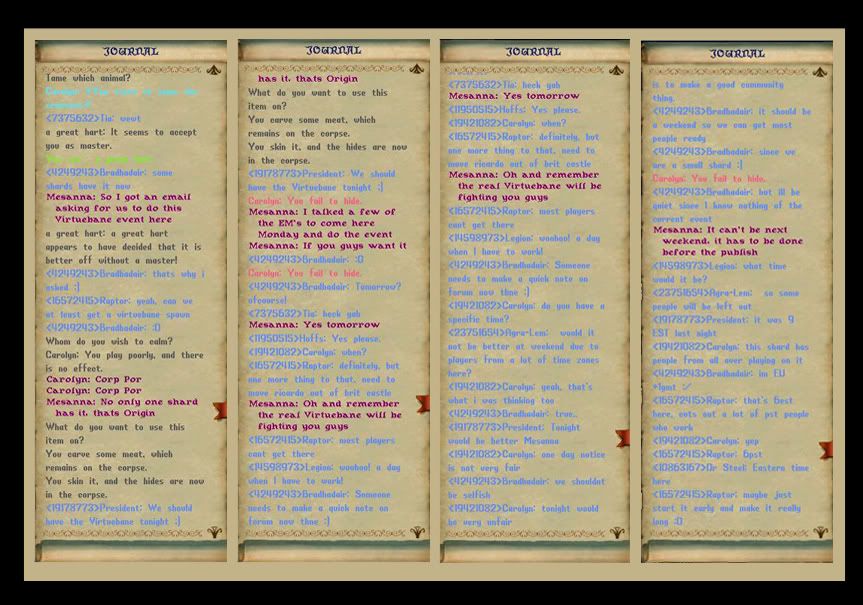 JOURNAL
Tame which animal?
<7375632>Tia: wewt
a great hart: It seems to accept
you as master.
<4249243>Bradhadair: some
shards have it now
Mesanna: So I got an email
asking for us to do this
Virtuebane event here
a great hart: a great hart
appears to have decided that it is
better off without a master!
<4249243>Bradhadair: thats why i
asked :]
<16572415>Raptor: yeah, can we
at least get a virtuebane spawn
<4249243>Bradhadair: :O
Whom do you wish to calm?
Carolyn: You play poorly, and there
is no effect.
Carolyn: Corp Por
Carolyn: Corp Por
Mesanna: No only one shard
has it, thats Origin
What do you want to use this
item on?
You carve some meat, which
remains on the corpse.
You skin it, and the hides are now
in the corpse.
<19178773>President: We should
have the Virtuebane tonight :]
JOURNAL
has it, thats Origin
What do you want to use this
item on?
You carve some meat, which
remains on the corpse.
You skin it, and the hides are now
in the corpse.
<19178773>President: We should
have the Virtuebane tonight :]
Carolyn: You fail to hide.
Mesanna: I talked a few of
the EM's to come here
Monday and do the event
Mesanna: If you guys want it
<4249243>Bradhadair: :O
Carolyn: You fail to hide.
<4249243>Bradhadair: Tomorrow?
ofcourse!
<7375632>Tia: heck yah
Mesanna: Yes tomorrow
<11950515>Hoffs: Yes please.
<19421082>Carolyn: when?
<16572415>Raptor: definitely, but
one more thing to that, need to
move ricardo out of brit castle
Mesanna: Oh and remember
the real Virtuebane will be
fighting you guys
<16572415>Raptor: most players
cant get there
<14598973>Legion: woohoo! a day
when I have to work!
<4249243>Bradhadair: Someone
needs to make a quick note on
forum now thne :)
JOURNAL
<7375632>Tia: heck yah
Mesanna: Yes tomorrow
<11950515>Hoffs: Yes please.
<19421082>Carolyn: when?
<16572415>Raptor: definitely, but
one more thing to that, need to
move ricardo out of brit castle
Mesanna: Oh and remember
the real Virtuebane will be
fighting you guys
<16572415>Raptor: most players
cant get there
<14598973>Legion: woohoo! a day
when I have to work!
<4249243>Bradhadair: Someone
needs to make a quick note on
forum now thne :)
<19421082>Carolyn: do you have a
specific time?
<23751654>Agra-Lem: would it
not be better at weekend due to
players from a lot of time zones
here?
<19421082>Carolyn: yeah, that's
what i was thinking too
<4249243>Bradhadair: true..
<19178773>President: Tonight
would be better Mesanna
<19421082>Carolyn: one day notice
is not very fair
<4249243>Bradhadair: we shouldnt
be selfish
<19421082>Carolyn: tonight would
be very unfair
JOURNAL
is to make a good community
thing.
<4249243>Bradhadair: it should be
a weekend so we can get most
people ready
<4249243>Bradhadair: since we
are a small shard :]
Carolyn: You fail to hide.
<4249243>Bradhadair: but ill be
quiet since I know nothing of the
current event
Mesanna: It can't be next
weekend, it has to be done
before the publish
<14598973>Legion: what time
would it be?
<23751654>Agra-Lem: so some
people will be left out
<19178773>President: it was 9
EST last night
<19421082>Carolyn: this shard has
people from all over playing on it
<4249243>Bradhadair: im EU
+1gmt :/
<16572415>Raptor: that's 6est
here, cuts out a lot of pst people
who work
<19421082>Carolyn: yep
<16572415>Raptor: 6pst
<10863167>Dr Steel: Eastern time
here
<16572415>Raptor: maybe just
start it early and make it really
long :O